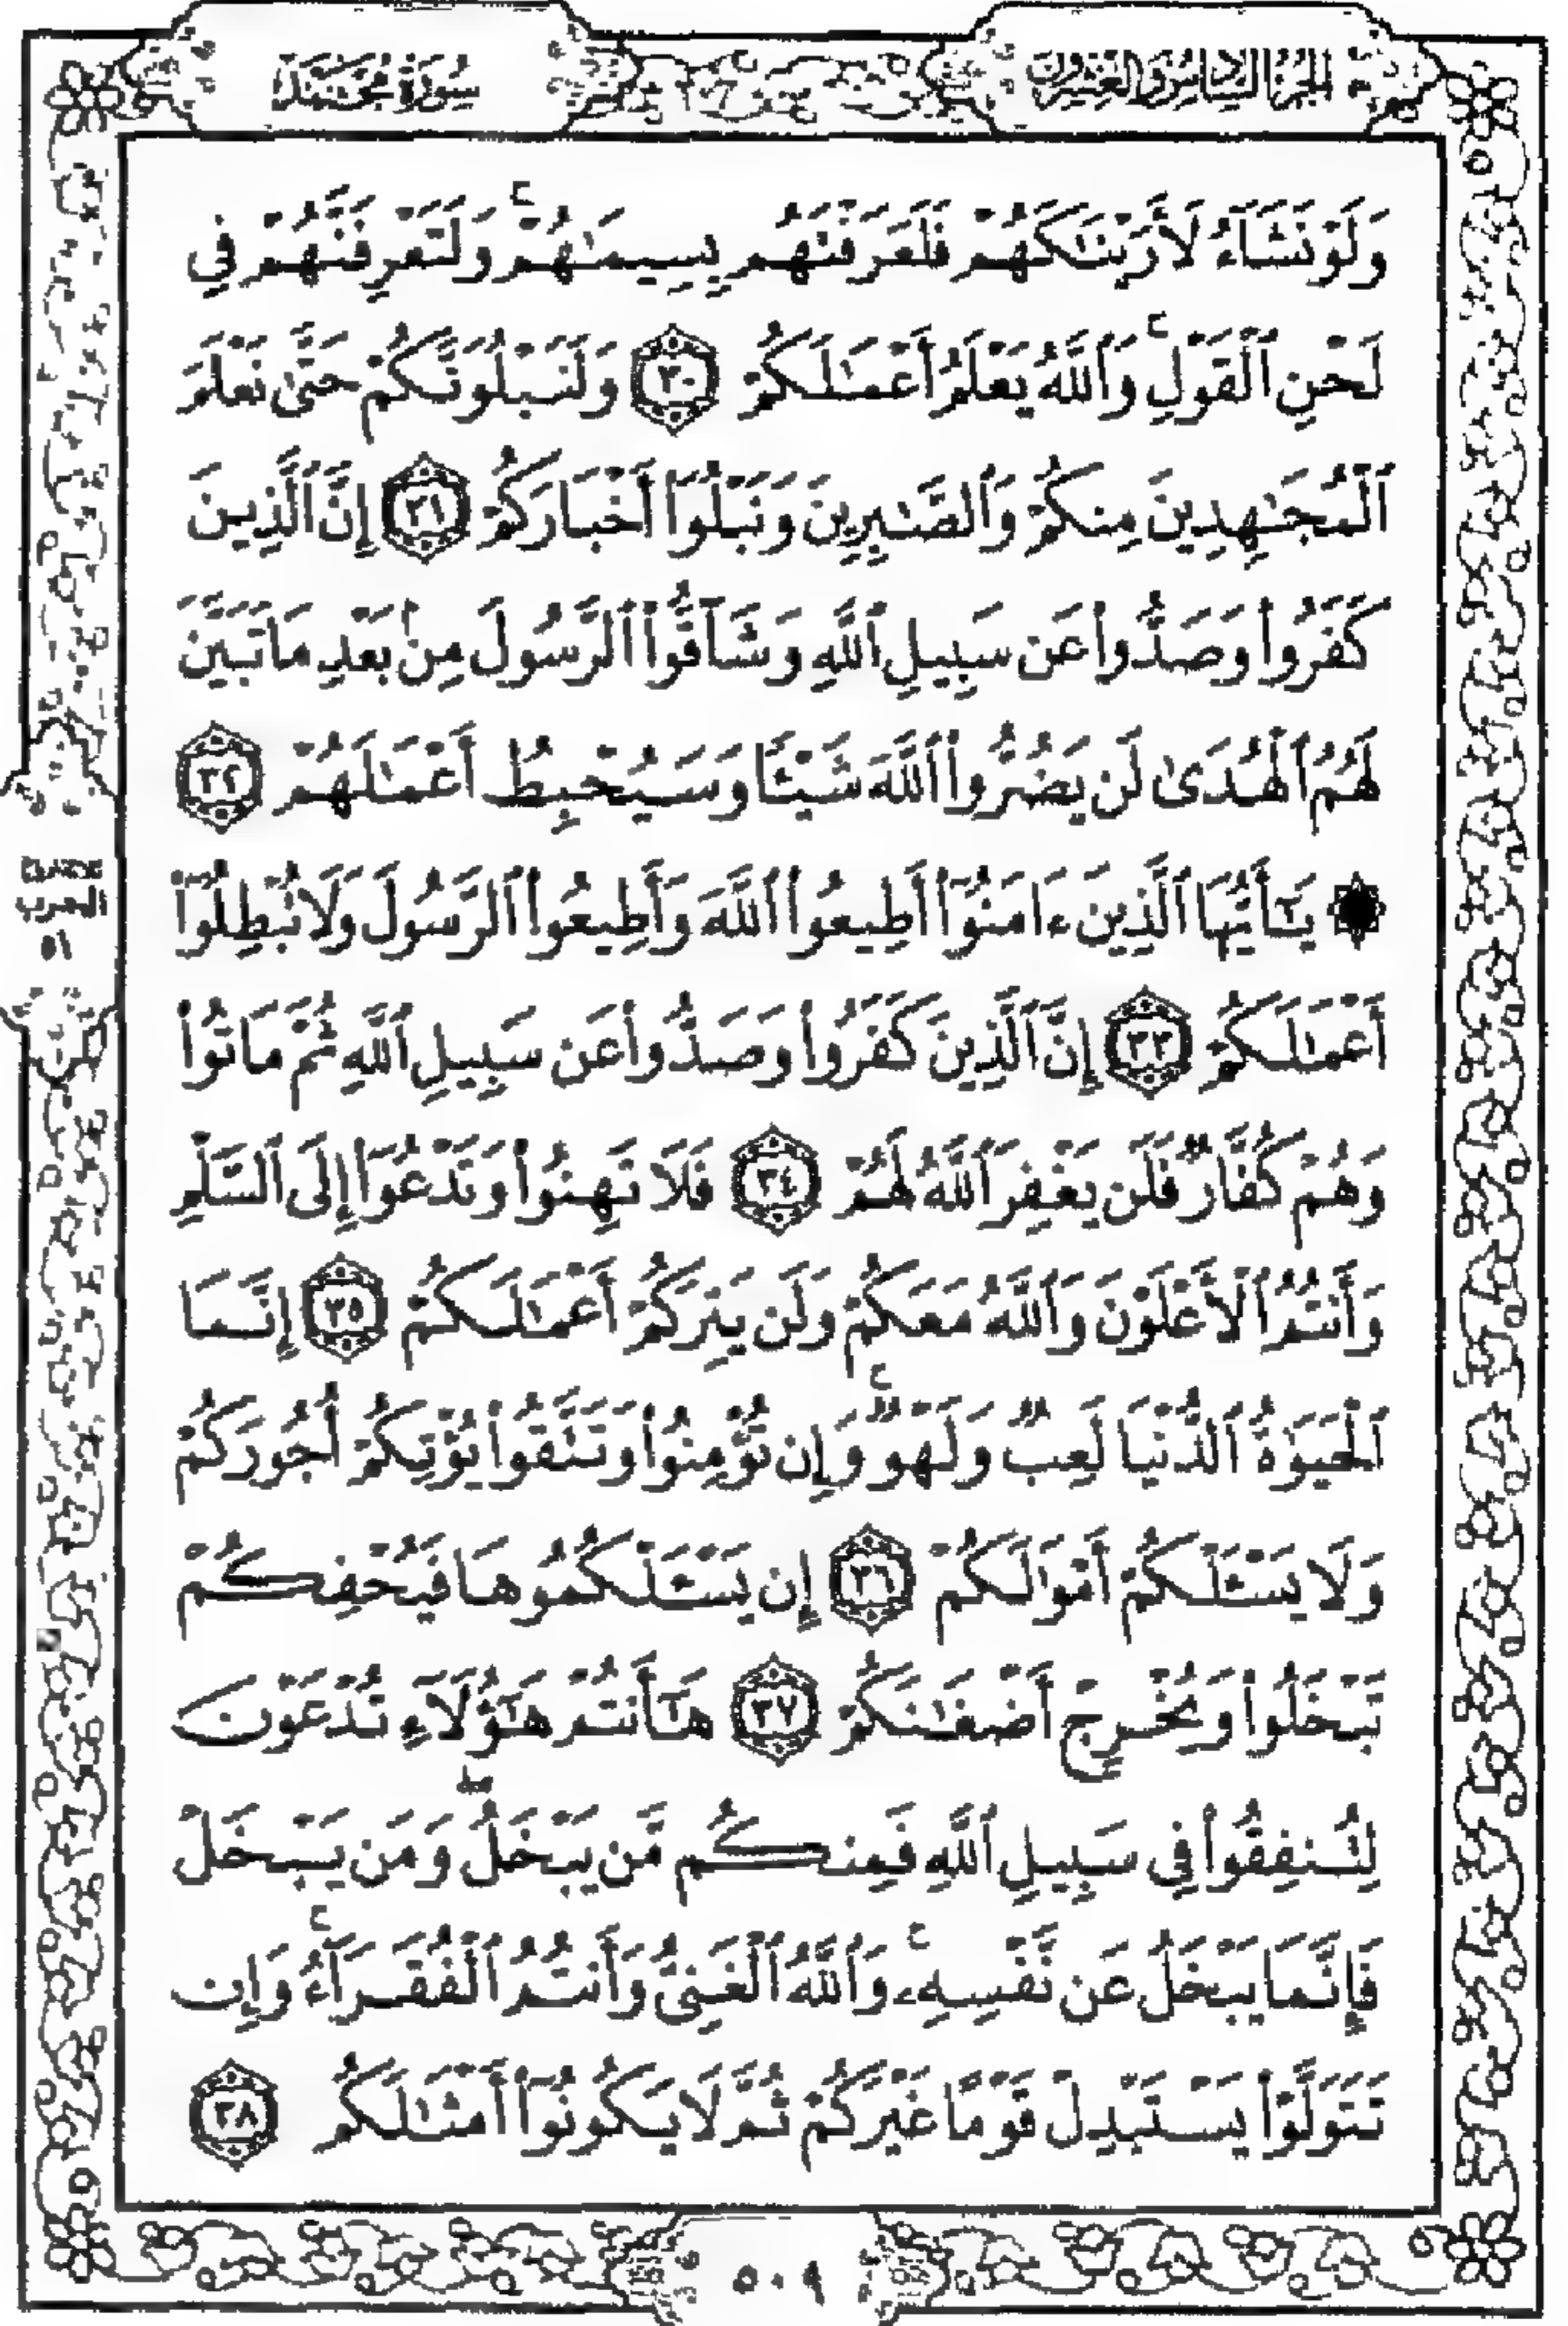 الجزء السادس والعشرون
سورة محمد
وَلَوْ نَشَآءُ لَأَرَيْنَٰكَهُمْ فَلَعَرَفْتَهُم بِسِيمَٰهُمْ ۚ وَلَتَعْرِفَنَّهُمْ فِى
لَحْنِ ٱلْقَوْلِ ۚ وَٱللَّهُ يَعْلَمُ أَعْمَٰلَكُمْ ٣٠ وَلَنَبْلُوَنَّكُمْ حَتَّىٰ نَعْلَمَ
ٱلْمُجَٰهِدِينَ مِنكُمْ وَٱلصَّٰبِرِينَ وَنَبْلُوَا۟ أَخْبَارَكُمْ ٣١ إِنَّ ٱلَّذِينَ
كَفَرُوا۟ وَصَدُّوا۟ عَن سَبِيلِ ٱللَّهِ وَشَآقُّوا۟ ٱلرَّسُولَ مِنۢ بَعْدِ مَا تَبَيَّنَ
لَهُمُ ٱلْهُدَىٰ لَن يَضُرُّوا۟ ٱللَّهَ شَيْـًٔا وَسَيُحْبِطُ أَعْمَٰلَهُمْ ٣٢
۞ يَٰٓأَيُّهَا ٱلَّذِينَ ءَامَنُوٓا۟ أَطِيعُوا۟ ٱللَّهَ وَأَطِيعُوا۟ ٱلرَّسُولَ وَلَا تُبْطِلُوٓا۟
أَعْمَٰلَكُمْ ٣٣ إِنَّ ٱلَّذِينَ كَفَرُوا۟ وَصَدُّوا۟ عَن سَبِيلِ ٱللَّهِ ثُمَّ مَاتُوا۟
وَهُمْ كُفَّارٌ فَلَن يَغْفِرَ ٱللَّهُ لَهُمْ ٣٤ فَلَا تَهِنُوا۟ وَتَدْعُوٓا۟ إِلَى ٱلسَّلْمِ
وَأَنتُمُ ٱلْأَعْلَوْنَ وَٱللَّهُ مَعَكُمْ وَلَن يَتِرَكُمْ أَعْمَٰلَكُمْ ٣٥ إِنَّمَا
ٱلْحَيَوٰةُ ٱلدُّنْيَا لَعِبٌ وَلَهْوٌ ۚ وَإِن تُؤْمِنُوا۟ وَتَتَّقُوا۟ يُؤْتِكُمْ أُجُورَكُمْ
وَلَا يَسْـَٔلْكُمْ أَمْوَٰلَكُمْ ٣٦ إِن يَسْـَٔلْكُمُوهَا فَيُحْفِكُمْ
تَبْخَلُوا۟ وَيُخْرِجْ أَضْغَٰنَكُمْ ٣٧ هَٰٓأَنتُمْ هَٰٓؤُلَآءِ تُدْعَوْنَ
لِتُنفِقُوا۟ فِى سَبِيلِ ٱللَّهِ فَمِنكُم مَّن يَبْخَلُ ۖ وَمَن يَبْخَلْ
فَإِنَّمَا يَبْخَلُ عَن نَّفْسِهِۦ ۚ وَٱللَّهُ ٱلْغَنِىُّ وَأَنتُمُ ٱلْفُقَرَآءُ ۚ وَإِن
تَتَوَلَّوْا۟ يَسْتَبْدِلْ قَوْمًا غَيْرَكُمْ ثُمَّ لَا يَكُونُوٓا۟ أَمْثَٰلَكُم ٣٨
الحزب
٥١
٥٠٩